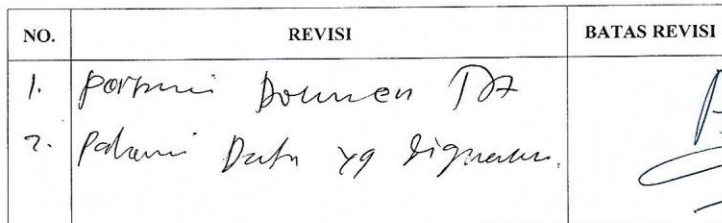 NO. REVISI BATAS REVISI
1. Dokumen TA
2. Pahami Data yg digunakan.